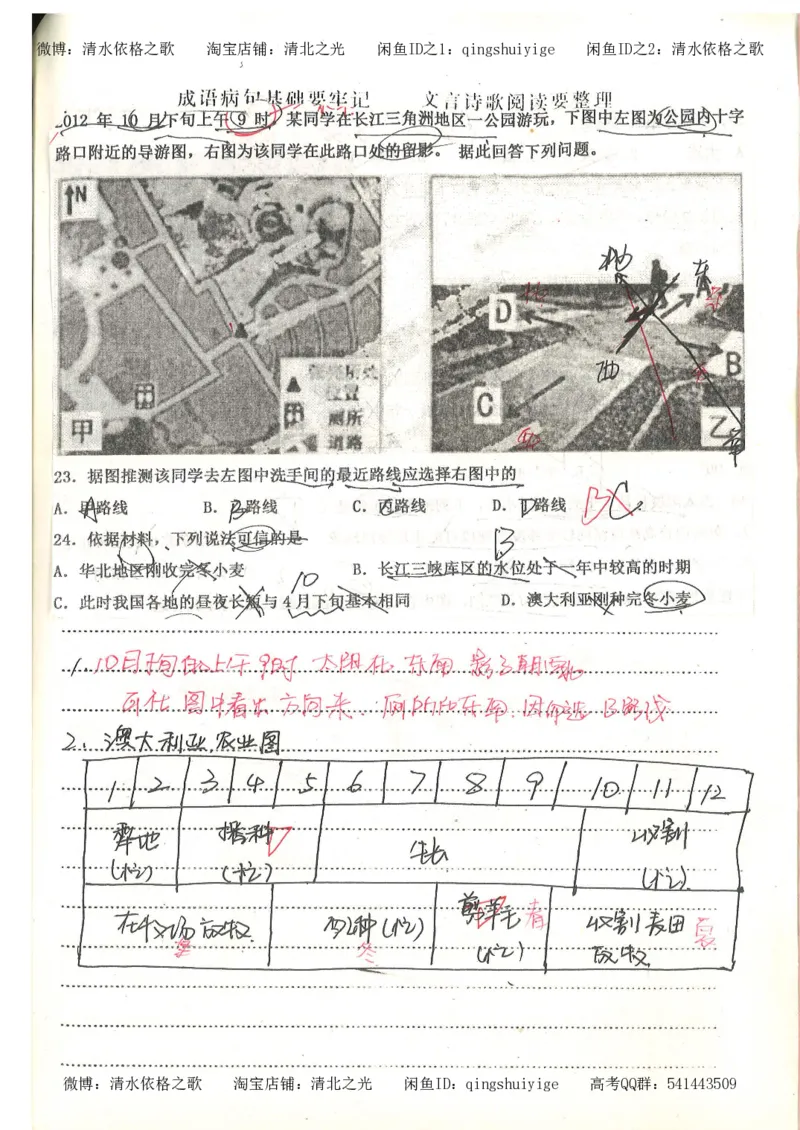 微博：清水依格之歌 淘宝店铺：清北之光 闲鱼ID之1：qingshuiyige 闲鱼ID之2：清水依格之歌
成语病句基础要牢记 文言诗歌阅读要整理
2012 年 10 月下旬上午 9 时，某同学在长江三角洲地区一公园游玩，下图中左图为公园内十字
路口附近的导游图，右图为该同学在此路口处的留影。 据此回答下列问题。
N
甲
位置
厕所
道路
北
东
D
A
西
B
C
乙
23．据图推测该同学去左图中洗手间的最近路线应选择右图中的
A．甲路线 B．乙路线 C．丙路线 D．丁路线 B C
24．依据材料，下列说法可信的是 B
A．华北地区刚收完冬小麦 B．长江三峡库区的水位处于一年中较高的时期
10
C．此时我国各地的昼夜长短与 4 月下旬基本相同 D．澳大利亚刚种完冬小麦
1. 10月下旬的上午9时 太阳在东南 影子朝西北
可在图中看出方向来. 厕所在东南 因而选B路线
2. 澳大利亚农业图
1 2 3 4 5 6 7 8 9 10 11 12
犁地 播种 生长 收割
(忙) (忙) (忙)
在牧场放牧 配种(忙) 剪羊毛 春 收割麦田 夏
冬 (忙) 放牧
微博：清水依格之歌 淘宝店铺：清北之光 闲鱼ID：qingshuiyige 高考QQ群：541443509